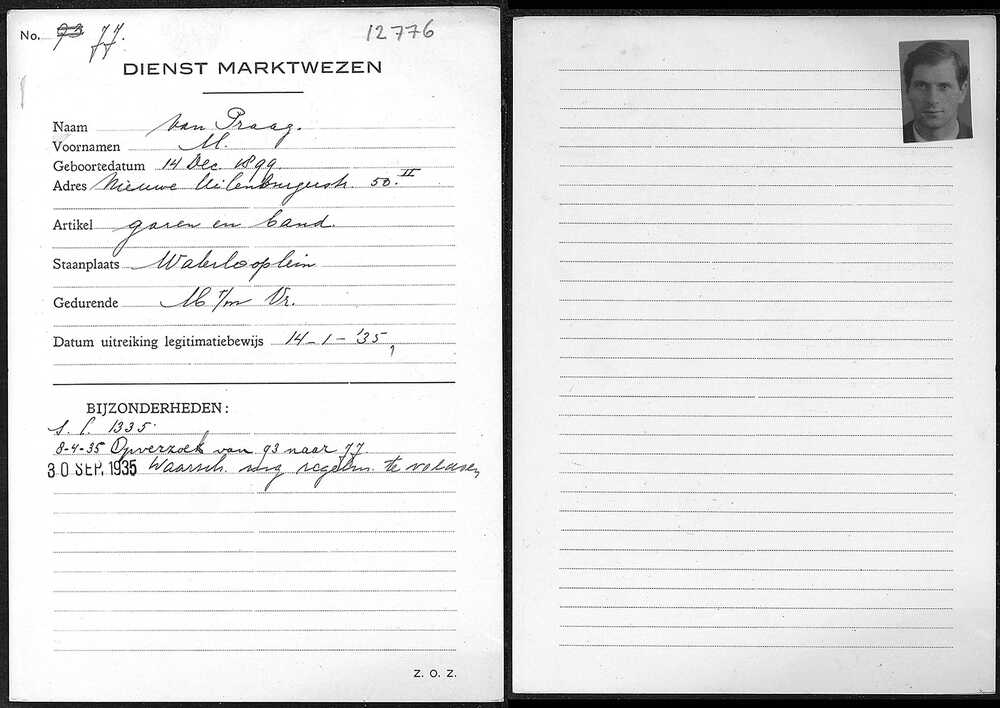 No. 93 77.
12776
DIENST MARKTWEZEN
Naam van Praag.
Voornamen M.
Geboortedatum 14 Dec. 1899.
Adres Nieuwe Uilenburgerstr. 50. II
Artikel garen en band.
Staanplaats Waterlooplein
Gedurende M t/m Vr.
Datum uitreiking legitimatiebewijs 14-1-'35
BIJZONDERHEDEN:
1335.
8-4-35 Op verzoek van 93 naar 77.
30 SEP. 1935 Waarsch. regelm. te voldoen
Z. O. Z.